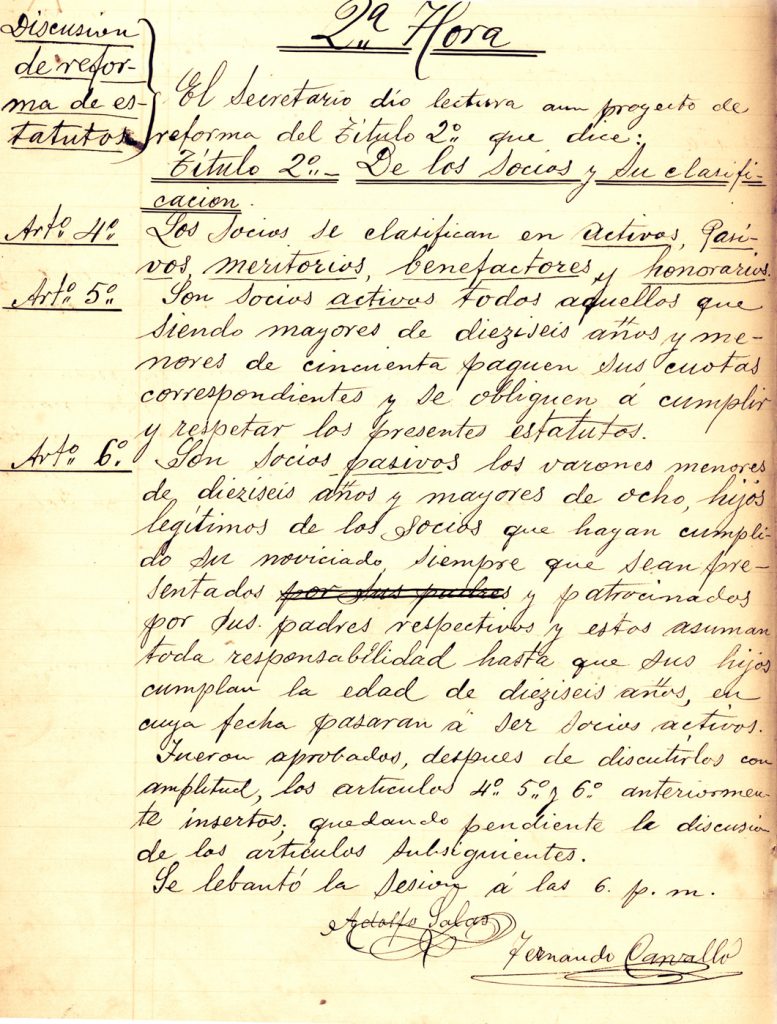 2ª Hora
Discusion
de refor-
ma de es-
tatutos
El Secretario dio lectura aun proyecto de
reforma del Título 2º que dice:
Título 2º- De los Socios y su clasifi-
cacion.
Artº 4º
Los Socios se clasifican en activos, Pasi-
vos, meritorios, benefactores y honorarios.
Artº 5º
Son Socios activos todos aquellos que
siendo mayores de dieziseis años y me-
nores de cincuenta paguen sus cuotas
correspondientes y se obliguen á cumplir
y respetar los presentes estatutos.
Artº 6º
Son socios pasivos los varones menores
de dieziseis años y mayores de ocho, hijos
legítimos de los Socios que hayan cumpli-
do su noviciado, siempre que sean pre-
sentados por sus padres y patrocinados
por sus padres respectivos y estos asuman
toda responsabilidad hasta que sus hijos
cumplan la edad de dieziseis años, en
cuya fecha pasaran á ser socios activos.
Fueron aprobados, despues de discutirlos con
amplitud, los articulos 4º 5º y 6º anteriormen-
te insertos; quedando pendiente la discusion
de los artículos subsiguientes.
Se lebantó la Sesion á las 6. p. m.
Adolfo Salas
Fernando Carvallo